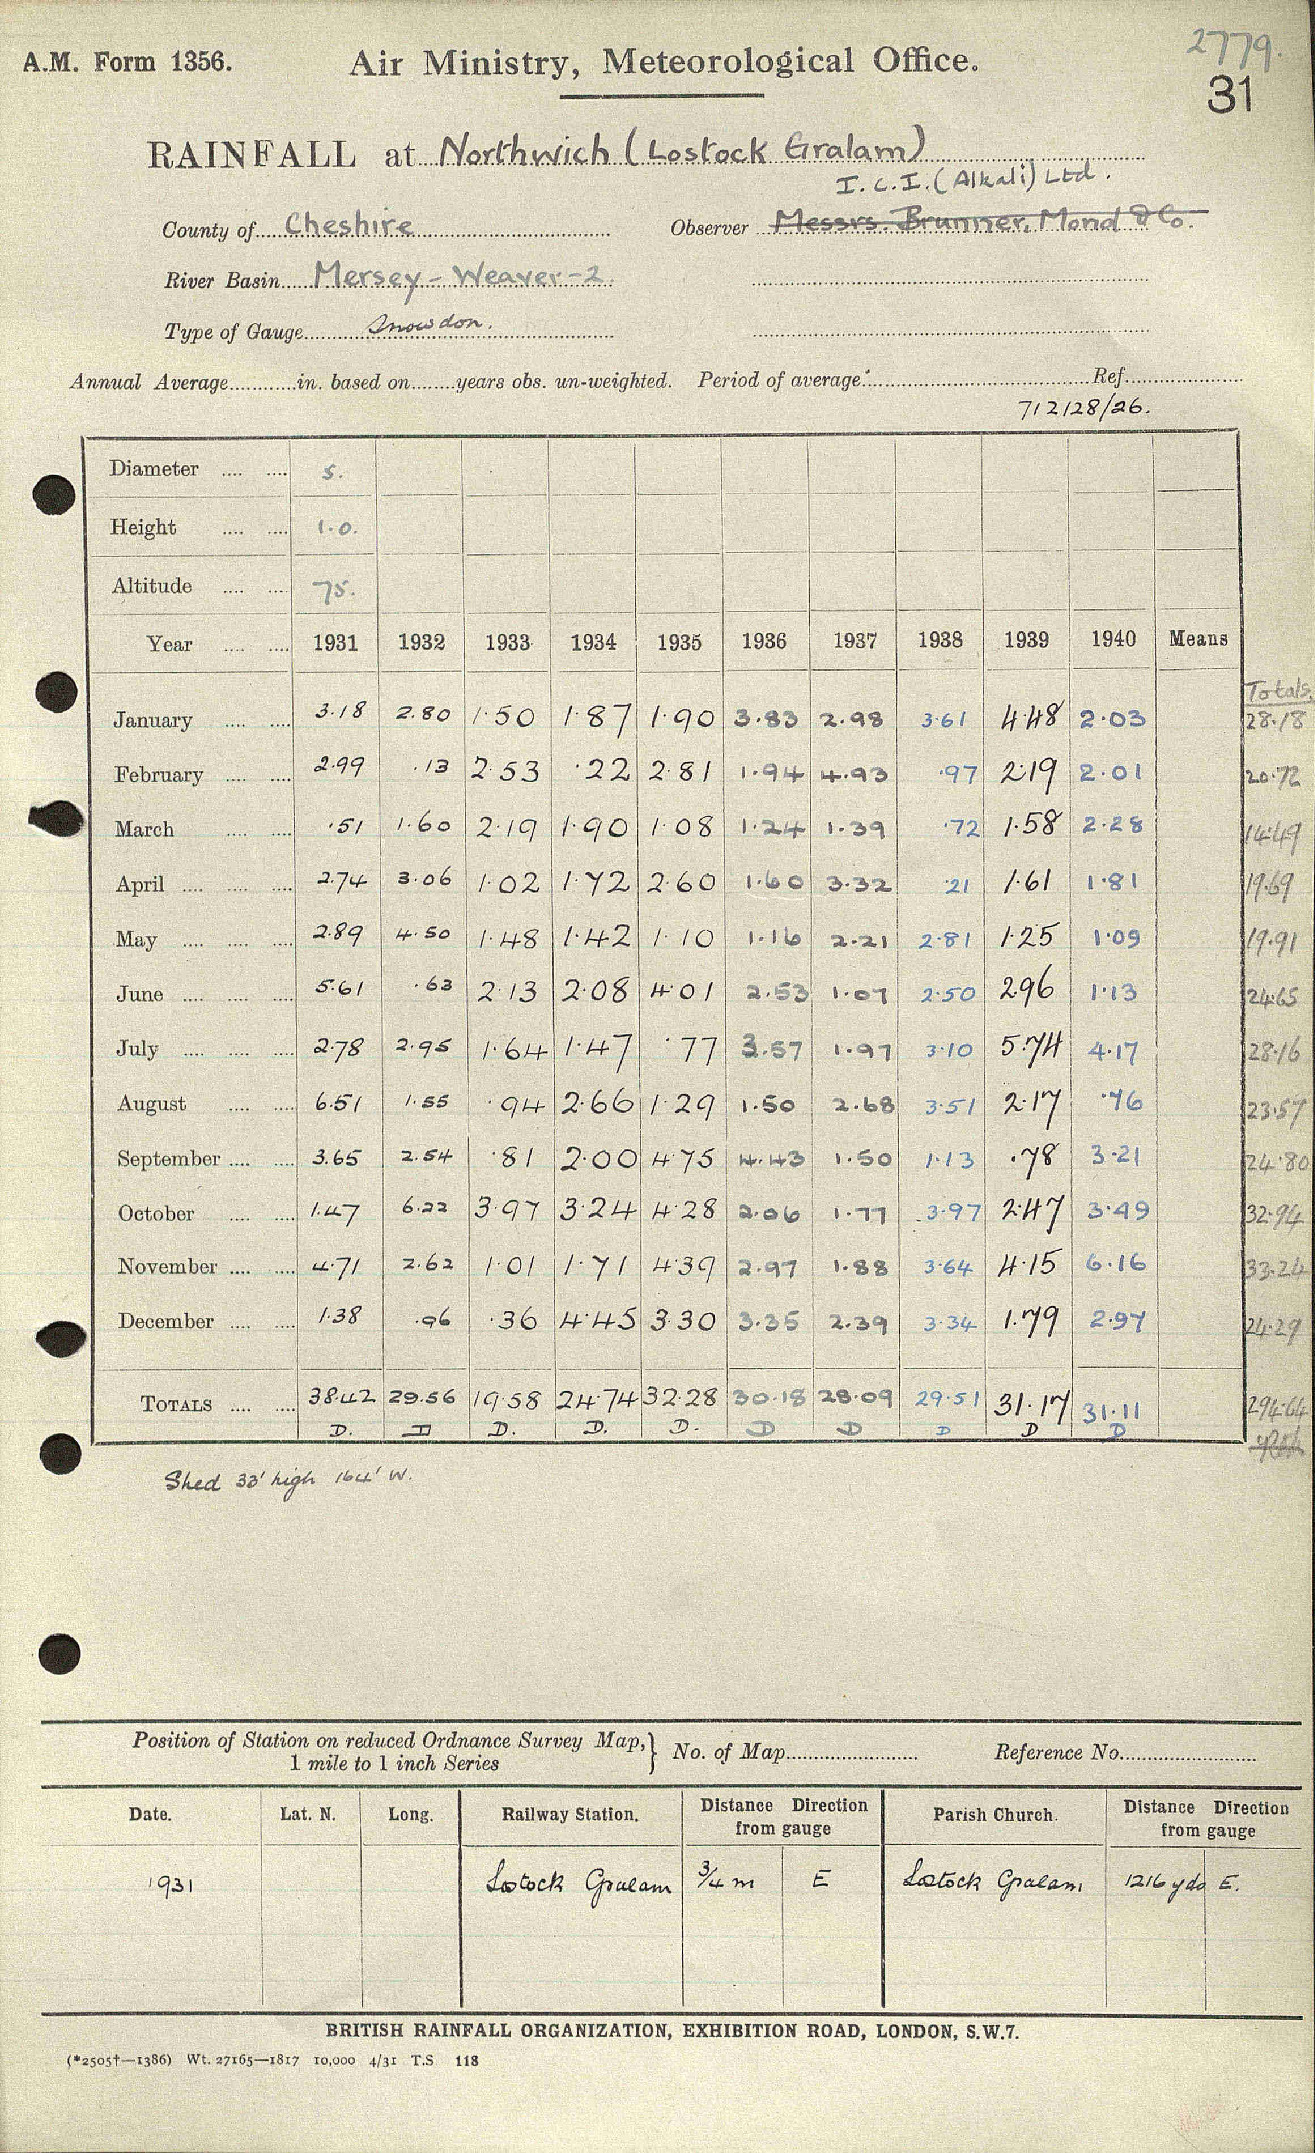 2779.
A.M. Form 1356. Air Ministry, Meteorological Office.
31
RAINFALL at Northwich (Lostock Gralam)
I.C.I. (Alkali) Ltd.
County of Cheshire Observer Messrs. Brunner, Mond & Co.
River Basin Mersey - Weaver - 2.
Type of Gauge Snowdon.
Annual Average in. based on years obs. un-weighted. Period of average Ref.
712128/26.
Diameter 5.
Height 1.0.
Altitude 75.
Year 1931 1932 1933 1934 1935 1936 1937 1938 1939 1940 Means
Totals.
January 3.18 2.80 1.50 1.87 1.90 3.83 2.98 3.61 4.48 2.03 28.18
February 2.99 .13 2.53 .22 2.81 1.94 4.93 .97 2.19 2.01 20.72
March .51 1.60 2.19 1.90 1.08 1.24 1.39 .72 1.58 2.28 14.49
April 2.74 3.06 1.02 1.72 2.60 1.60 3.32 .21 1.61 1.81 19.69
May 2.89 4.50 1.48 1.42 1.10 1.16 2.21 2.81 1.25 1.09 19.91
June 5.61 .63 2.13 2.08 4.01 2.53 1.07 2.50 2.96 1.13 24.65
July 2.78 2.95 1.64 1.47 .77 3.57 1.97 3.10 5.74 4.17 28.16
August 6.51 1.55 .94 2.66 1.29 1.50 2.68 3.51 2.17 .76 23.57
September 3.65 2.54 .81 2.00 4.75 4.43 1.50 1.13 .78 3.21 24.80
October 1.47 6.22 3.97 3.24 4.28 2.06 1.77 3.97 2.47 3.49 32.94
November 4.71 2.62 1.01 1.71 4.39 2.97 1.88 3.64 4.15 6.16 33.24
December 1.38 .96 .36 4.45 3.30 3.35 2.39 3.34 1.79 2.97 24.29
TOTALS 38.42 29.56 19.58 24.74 32.28 30.18 28.09 29.51 31.17 31.11 294.64
D. D D. D. D. D D D D D
Shed 33' high 164' W.
Position of Station on reduced Ordnance Survey Map, 1 mile to 1 inch Series } No. of Map Reference No.
Date. Lat. N. Long. Railway Station. Distance Direction from gauge Parish Church. Distance Direction from gauge
1931 Lostock Gralam 3/4 m E Lostock Gralam 1216 yds E.
BRITISH RAINFALL ORGANIZATION, EXHIBITION ROAD, LONDON, S.W.7.
(*2505†—1386) Wt. 27165—1817 10,000 4/31 T.S 118